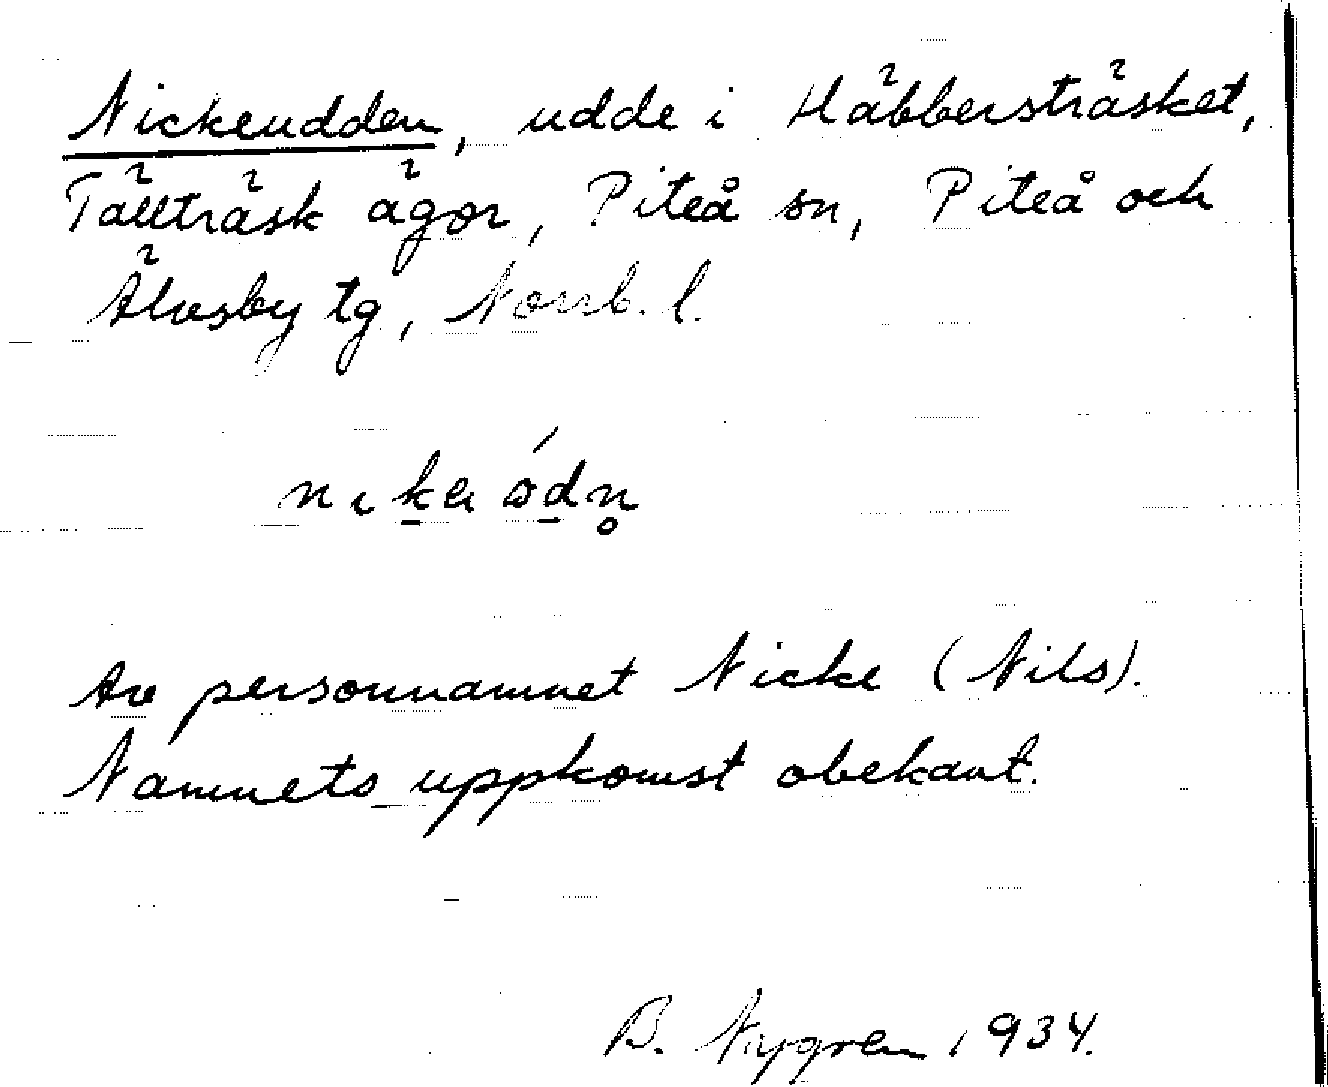 Nickeudden, udde i Häbbersträsket,
Tällträsk ägor, Piteå sn, Piteå och
Älvsby tg, Norrb. l.
Av personnamnet Nicke (Nils).
Namnets uppkomst obekant.
B. Nygren 1934.